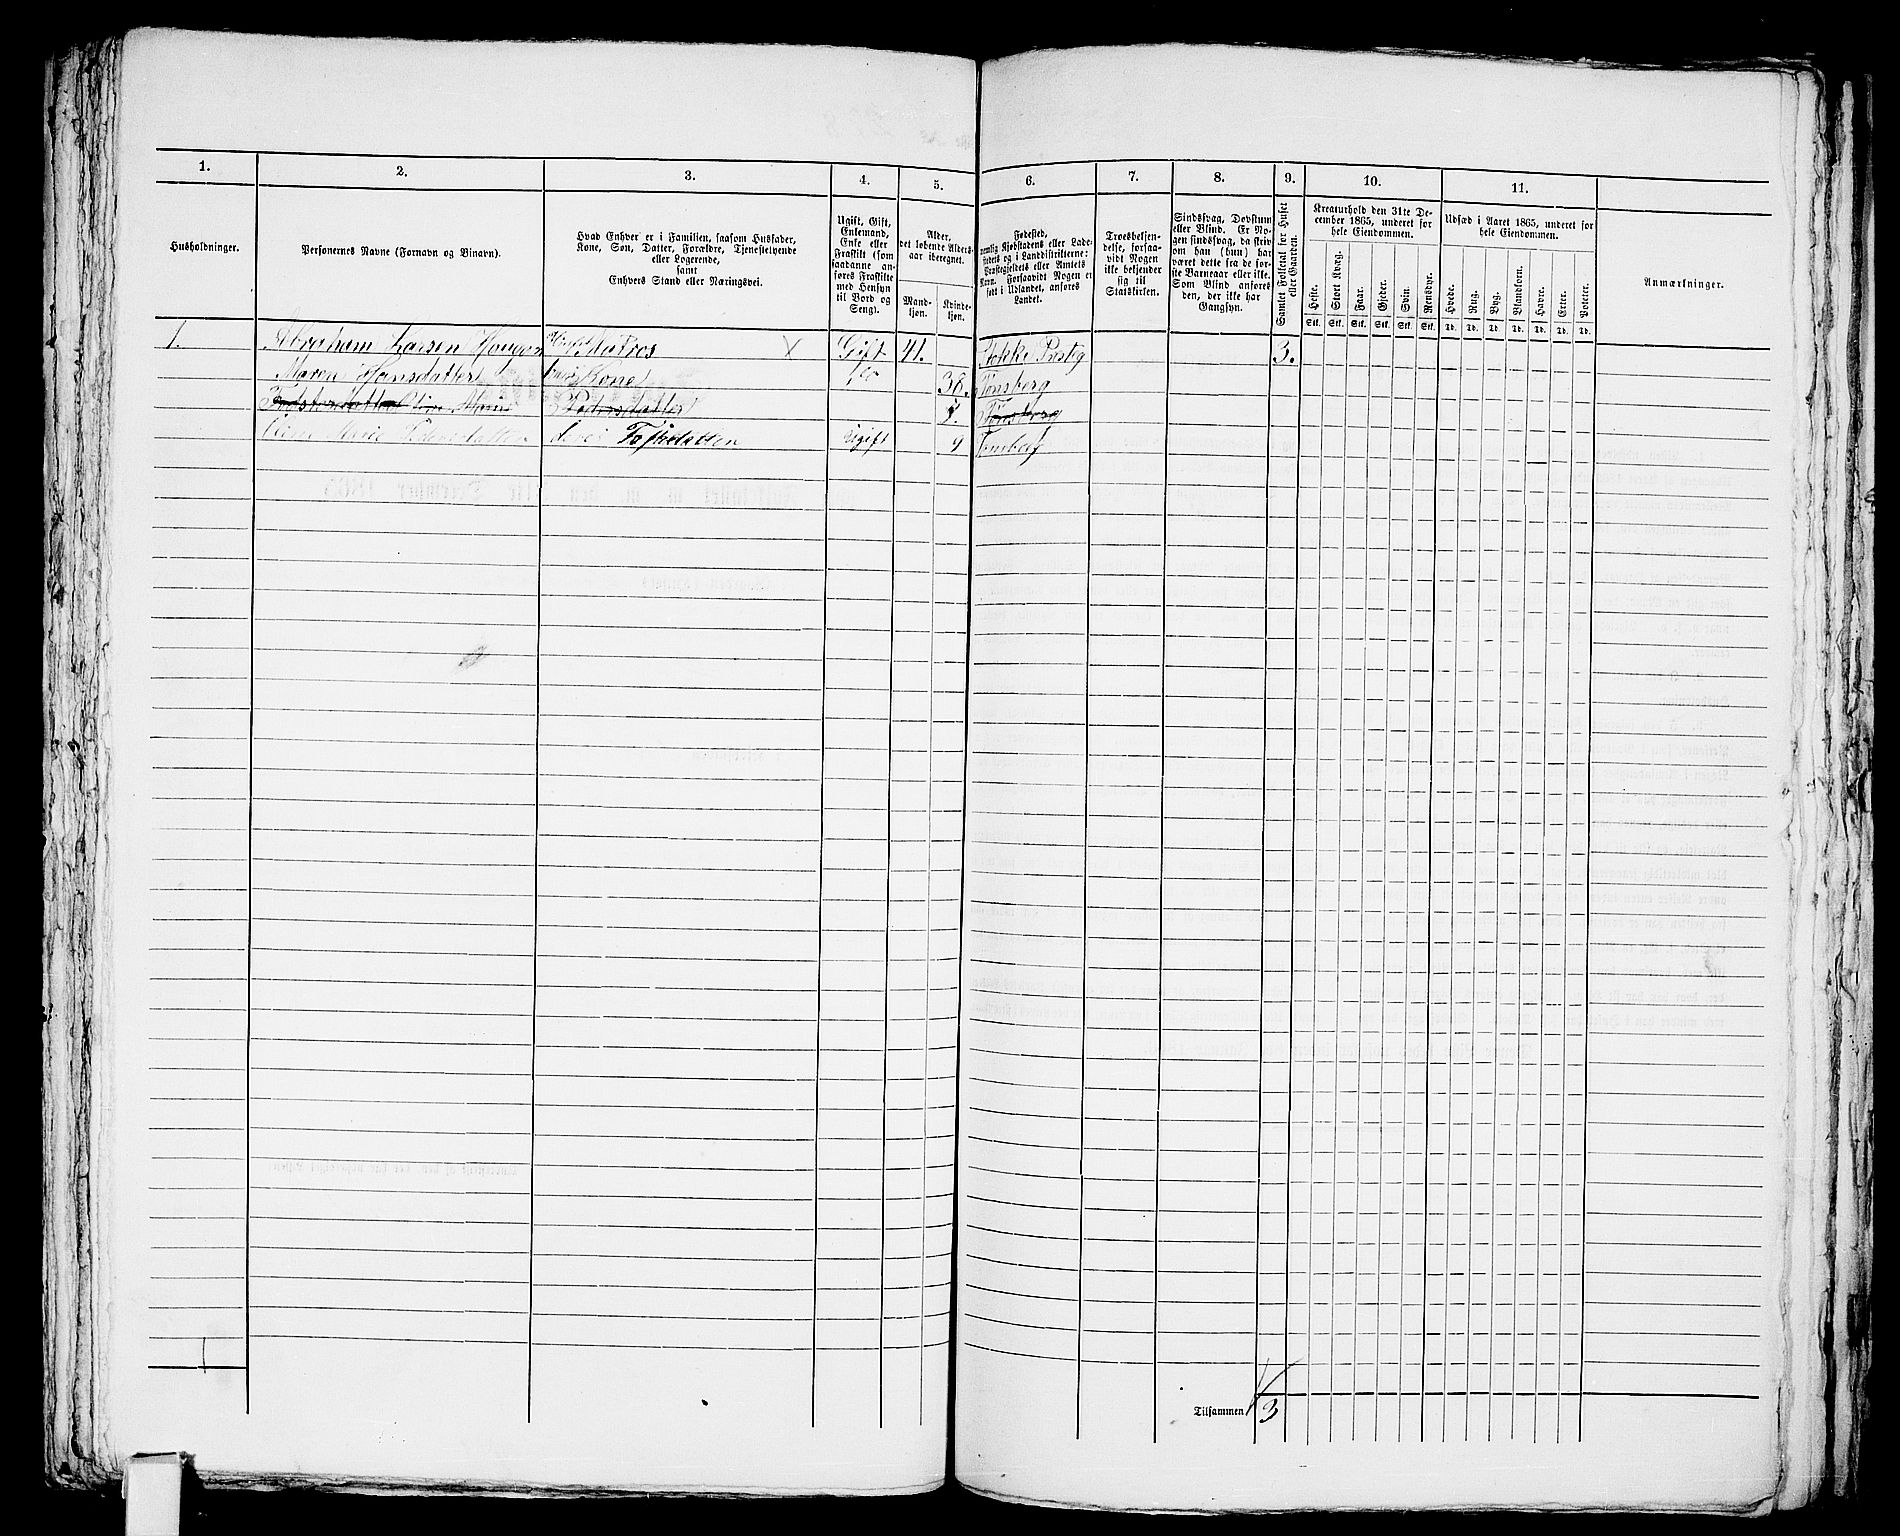 1.
2.
3.
4.
5.
6.
7.
8.
9.
10.
11.
Husholdninger.
Personernes Navne (Fornavn og Binavn).
Hvad Enhver er i Familien, saasom Husfader,
Kone, Søn, Datter, Forældre, Tjenestetyende
eller Logerende,
samt
Enhvers Stand eller Næringsvei.
Ugift, Gift,
Enkemand,
Enke eller
Fraskilt (som
saadanne an-
føres Fraskilte
med Hensyn
til Bord og
Seng).
Alder,
det løbende Alders-
aar iberegnet.
Mand-
kjøn.
Kvinde-
kjøn.
Fødested,
nemlig Kjøbstadens eller Lade-
stedets og i Landdistrikterne:
Præstegjeldets eller Amtets
Navn. Forsaavidt Nogen er
født i Udlandet, anføres
Landet.
Troesbekjen-
delse, forsaa-
vidt Nogen
ikke bekjender
sig til
Statskirken.
Sindssvag, Døvstum
eller Blind. Er No-
gen sindssvag, da skriv
om han (hun) har
været dette fra de før-
ste Barneaar eller ikke.
Som Blind ansøres
den, der ikke har
Gangsyn.
Samlet Folketal for Huset
eller Gaarden.
Kreaturhold den 31te De-
cember 1865, underet for
hele Eiendommen.
Heste.
Stort Kvæg.
Faar.
Gjeder.
Svin.
Rensdyr.
Stk. Stk. Stk. Stk. Stk. Stk.
Udsæd i Aaret 1865, underet for
hele Eiendommen.
Hvede.
Rug.
Byg.
Blandkorn.
Havre.
Erter.
Poteter.
Td. Td. Td. Td. Td. Td. Td.
Anmærkninger.
1. Abraham Larsen Matros X Gift 41. Stokke Prstg 3.
Maren Hansdatter Kone do 38. Tønsberg
Pedersdatter Tønsberg
Marie Pedersdatter deres ugift 9 Tønsberg
1
Tilsammen 3